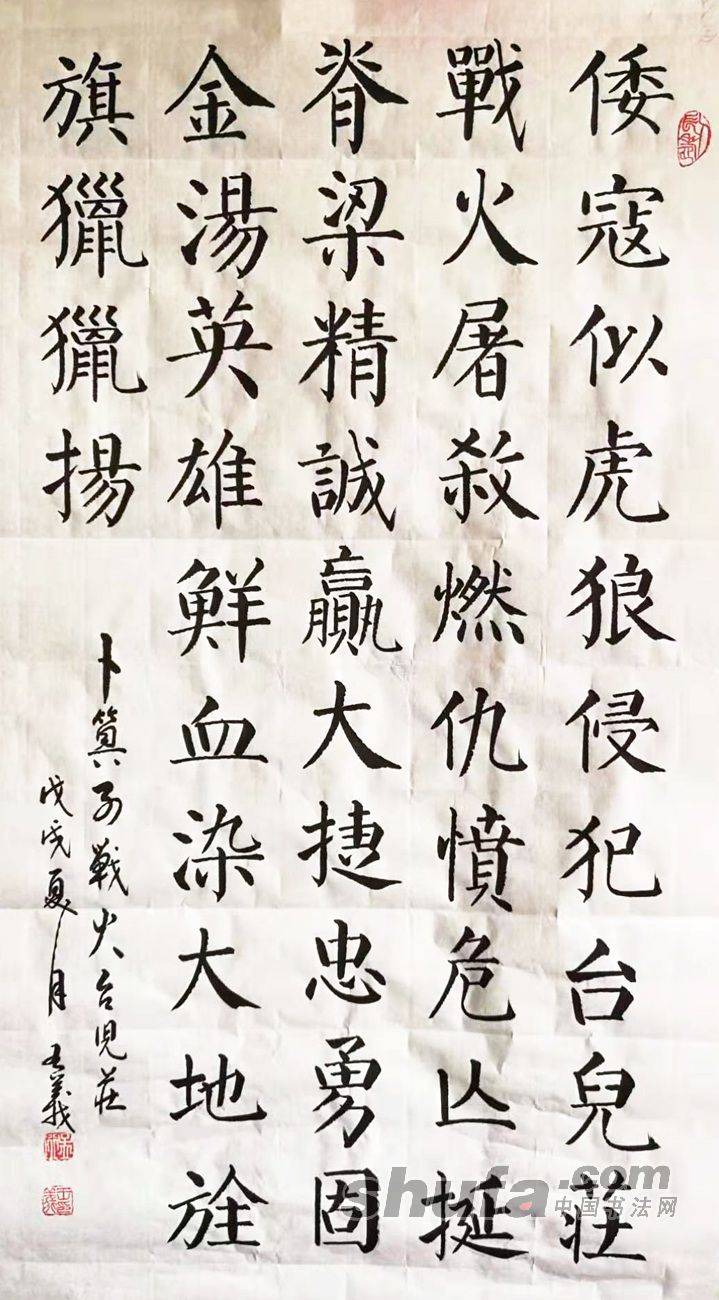 倭寇似虎狼侵犯台兒莊
戰火屠殺燃仇憤危亾挺
脊梁精誠贏大捷忠勇固
金湯英雄鮮血染大地旌
旗獵獵揚
卜算子戰火台児莊
戊戌夏月
shufa.com
中国书法网